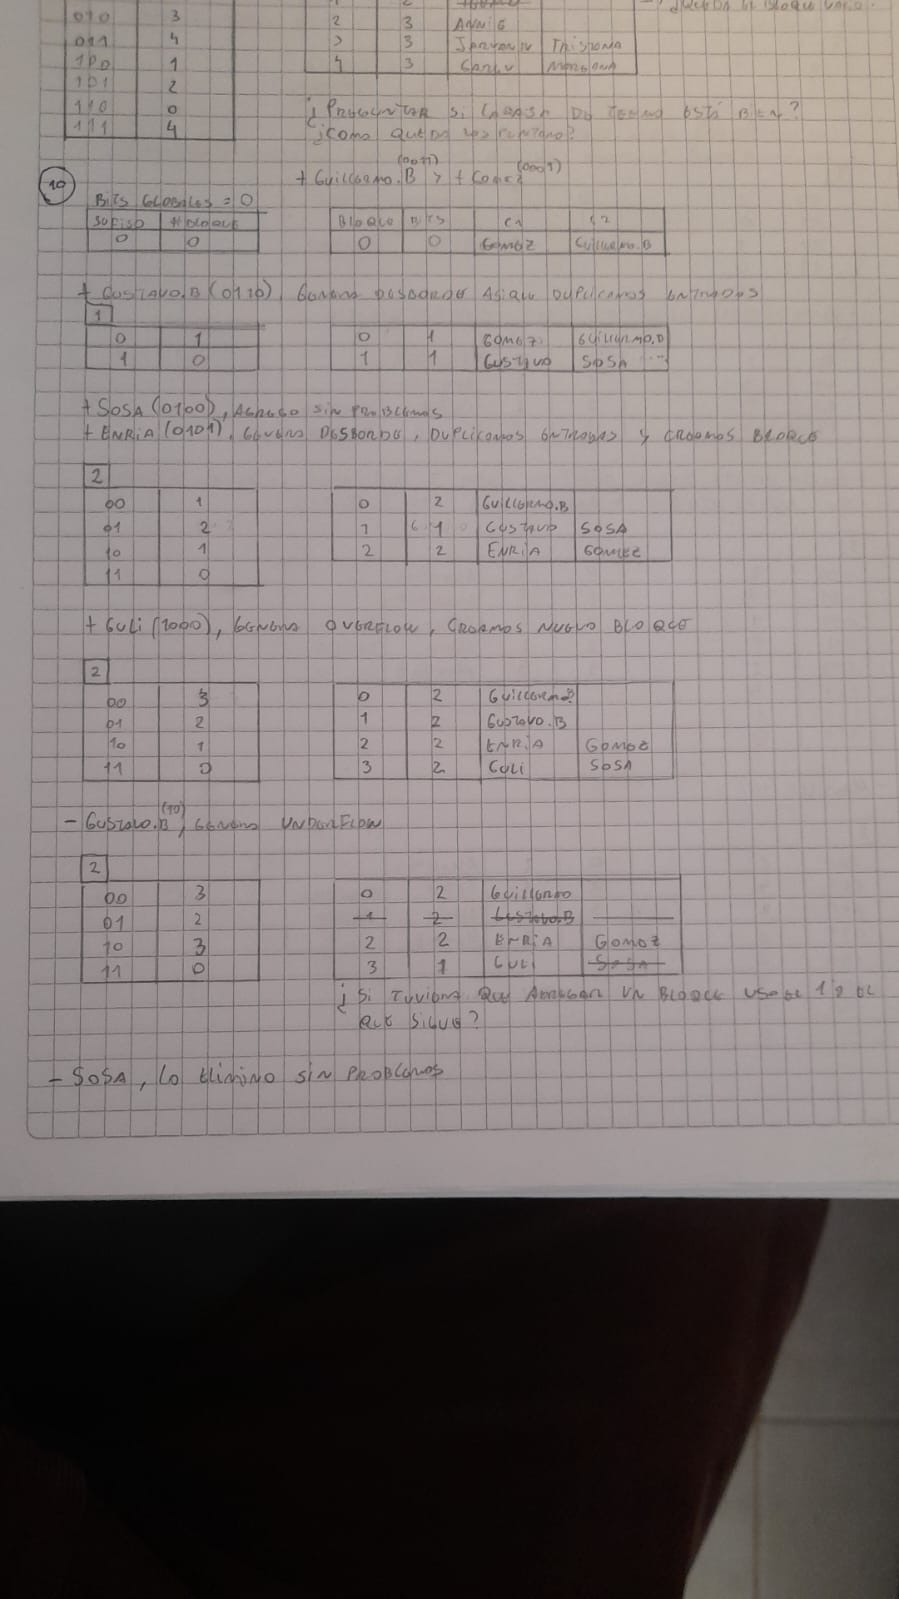 ¿QUEDA EL BLOQUE VACIO.
010 3
011 4
100 1
101 2
110 0
111 4
2 3 ANNIE
3 3 JARVAN IV TRISTANA
4 3 MORGANA
¿PREGUNTAR SI ESTÁ BIEN?
¿COMO QUEDA
+ GUILLERMO.B (0011) y + GOMEZ (0001)
10
BITS GLOBALES = 0
SUFIJO #BLOQUE
0 0
BLOQUE BITS C1 C2
0 0 GOMEZ GUILLERMO.B
+ GUSTAVO.B (0110), GENERA DESBORDO ASIQUE DUPLICAMOS ENTRADAS
1
0 1
1 0
0 1 GOMEZ GUILLERMO.B
1 1 GUSTAVO SOSA
+ SOSA (0100), AGREGO SIN PROBLEMAS
+ ENRIA (0101), GENERA DESBORDO, DUPLICAMOS ENTRADAS y CREAMOS BLOQUE
2
00 1
01 2
10 1
11 0
0 2 GUILLERMO.B
1 1 GUSTAVO SOSA
2 2 ENRIA GOMEZ
+ GULI (1000), GENERA OVERFLOW, CREAMOS NUEVO BLOQUE
2
00 3
01 2
10 1
11 0
0 2 GUILLERMO.B
1 2 GUSTAVO.B
2 2 ENRIA GOMEZ
3 2 GULI SOSA
- GUSTAVO.B (10), GENERA UNDERFLOW
2
00 3
01 2
10 3
11 0
0 2 GUILLERMO
1 2 GUSTAVO.B
2 2 ENRIA GOMEZ
3 1 GULI SOSA
¿SI TUVIERA QUE AGREGAR UN BLOQUE USO EL 1 o EL
QUE SIGUE?
- SOSA, LO ELIMINO SIN PROBLEMAS